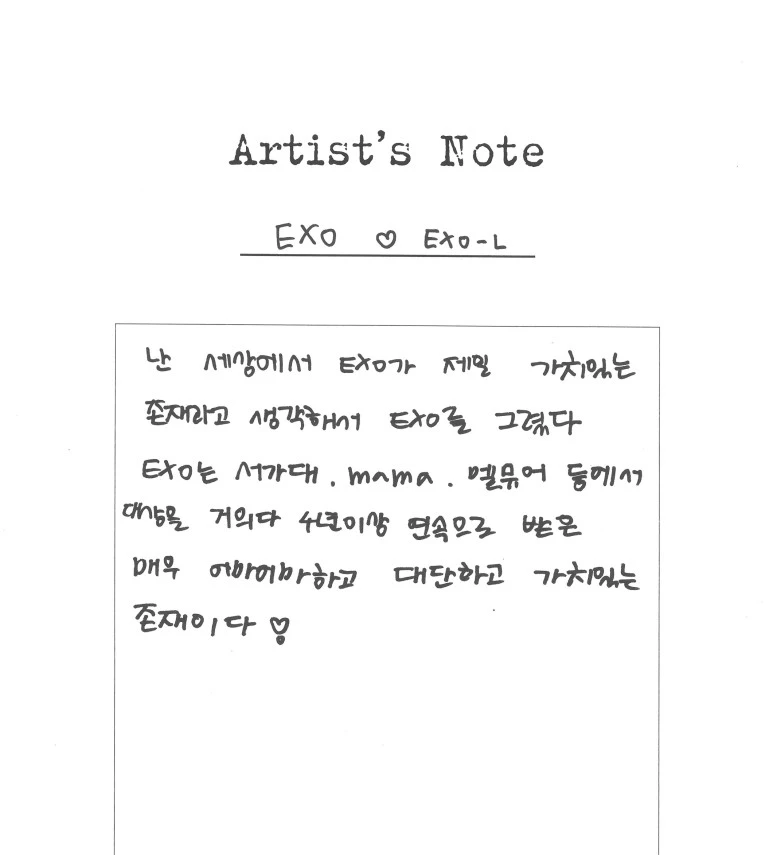 Artist's Note
EXO ♡ EXO-L
난 세상에서 EXO가 제일 가치있는
존재라고 생각해서 EXO를 그렸다
EXO는 서가대. mama. 멜뮤어 등에서
대상을 거의다 4년이상 연속으로 받은
매우 어마어마하고 대단하고 가치있는
존재이다 ♡